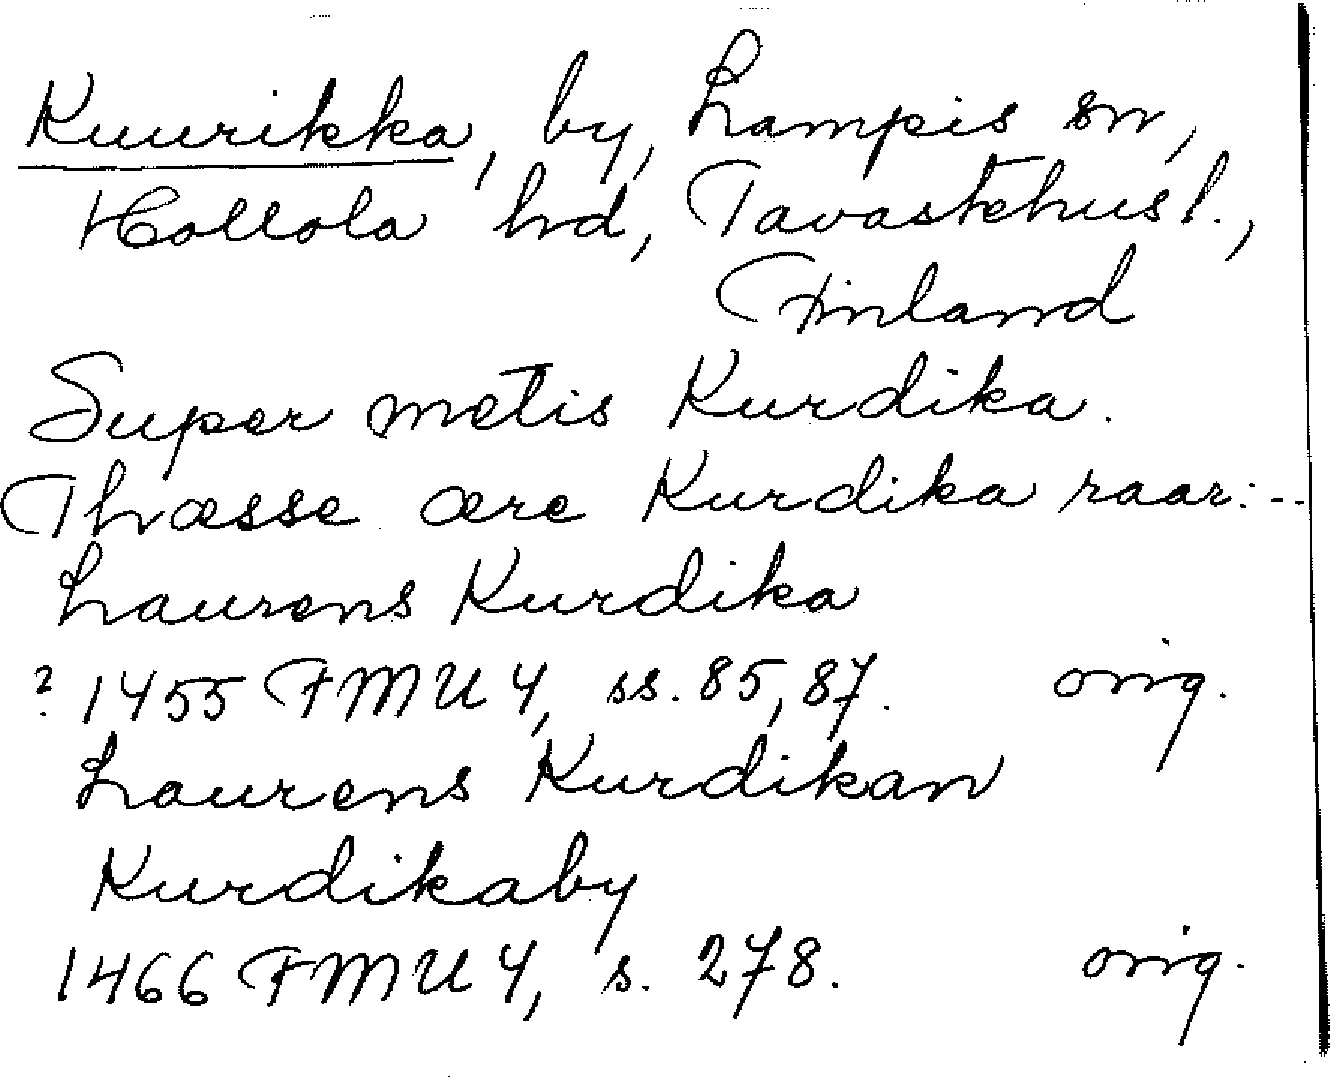 Kuurikka, by, Lampis sn,
Hollola hd, Tavastehus l.,
Finland
Super metis Kurdika.
Thæsse ære Kurdika raar: --
Laurens Kurdika
? 1455 FMU 4, ss. 85, 87. orig.
Laurens Kurdikan
Kurdikaby
1466 FMU 4, s. 278. orig.